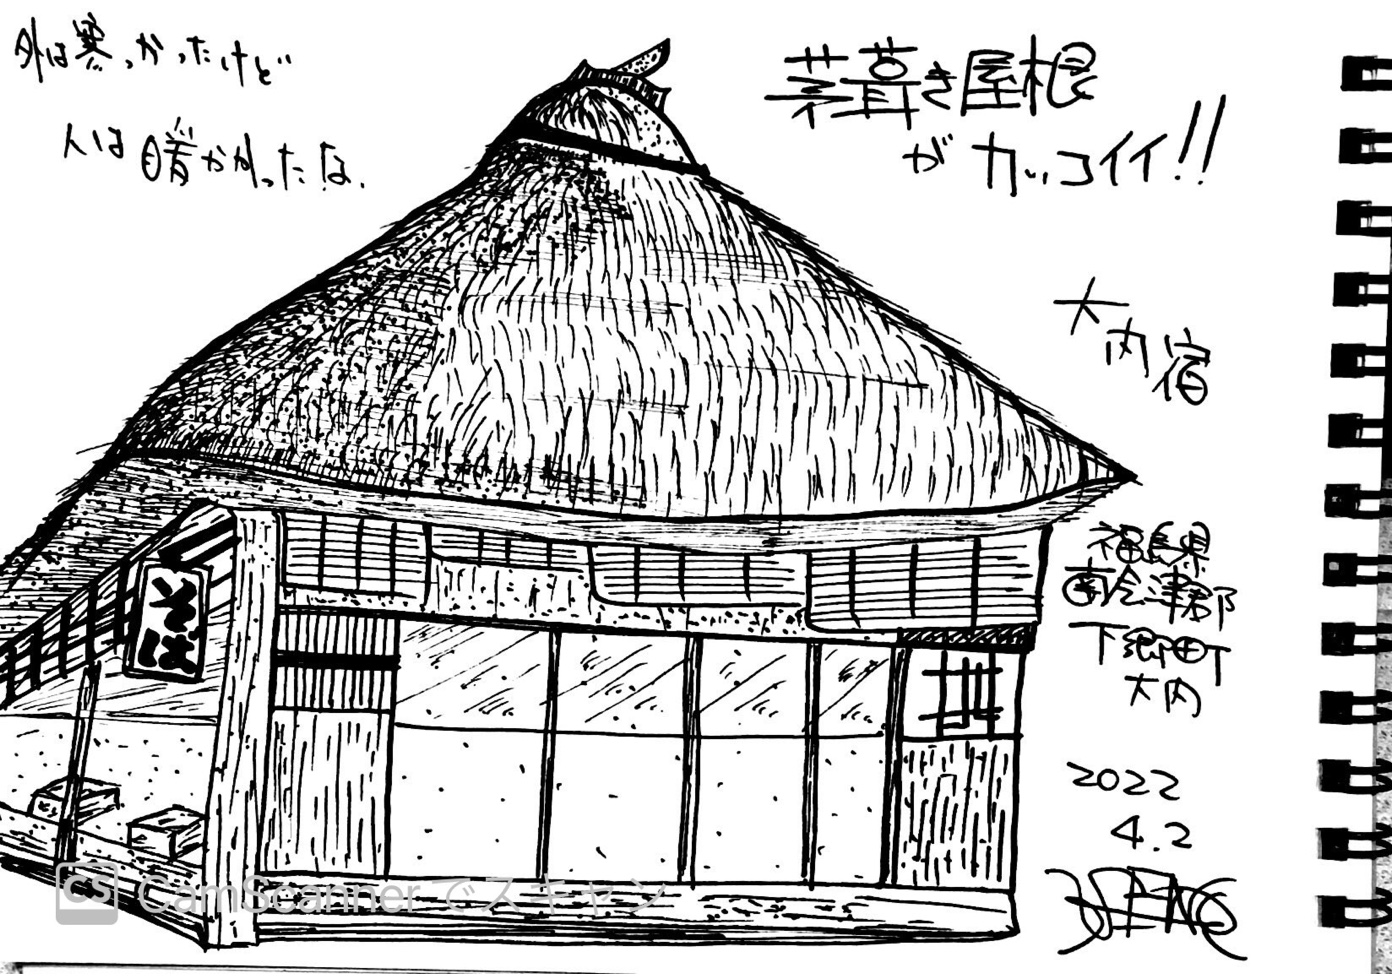 外は寒かったけど
人は暖かかったな.
茅葺き屋根
がカッコイイ!!
大内宿
そば
福島県
南会津郡
下郷町
大内
2022
4.2
CS CamScanner でスキャン